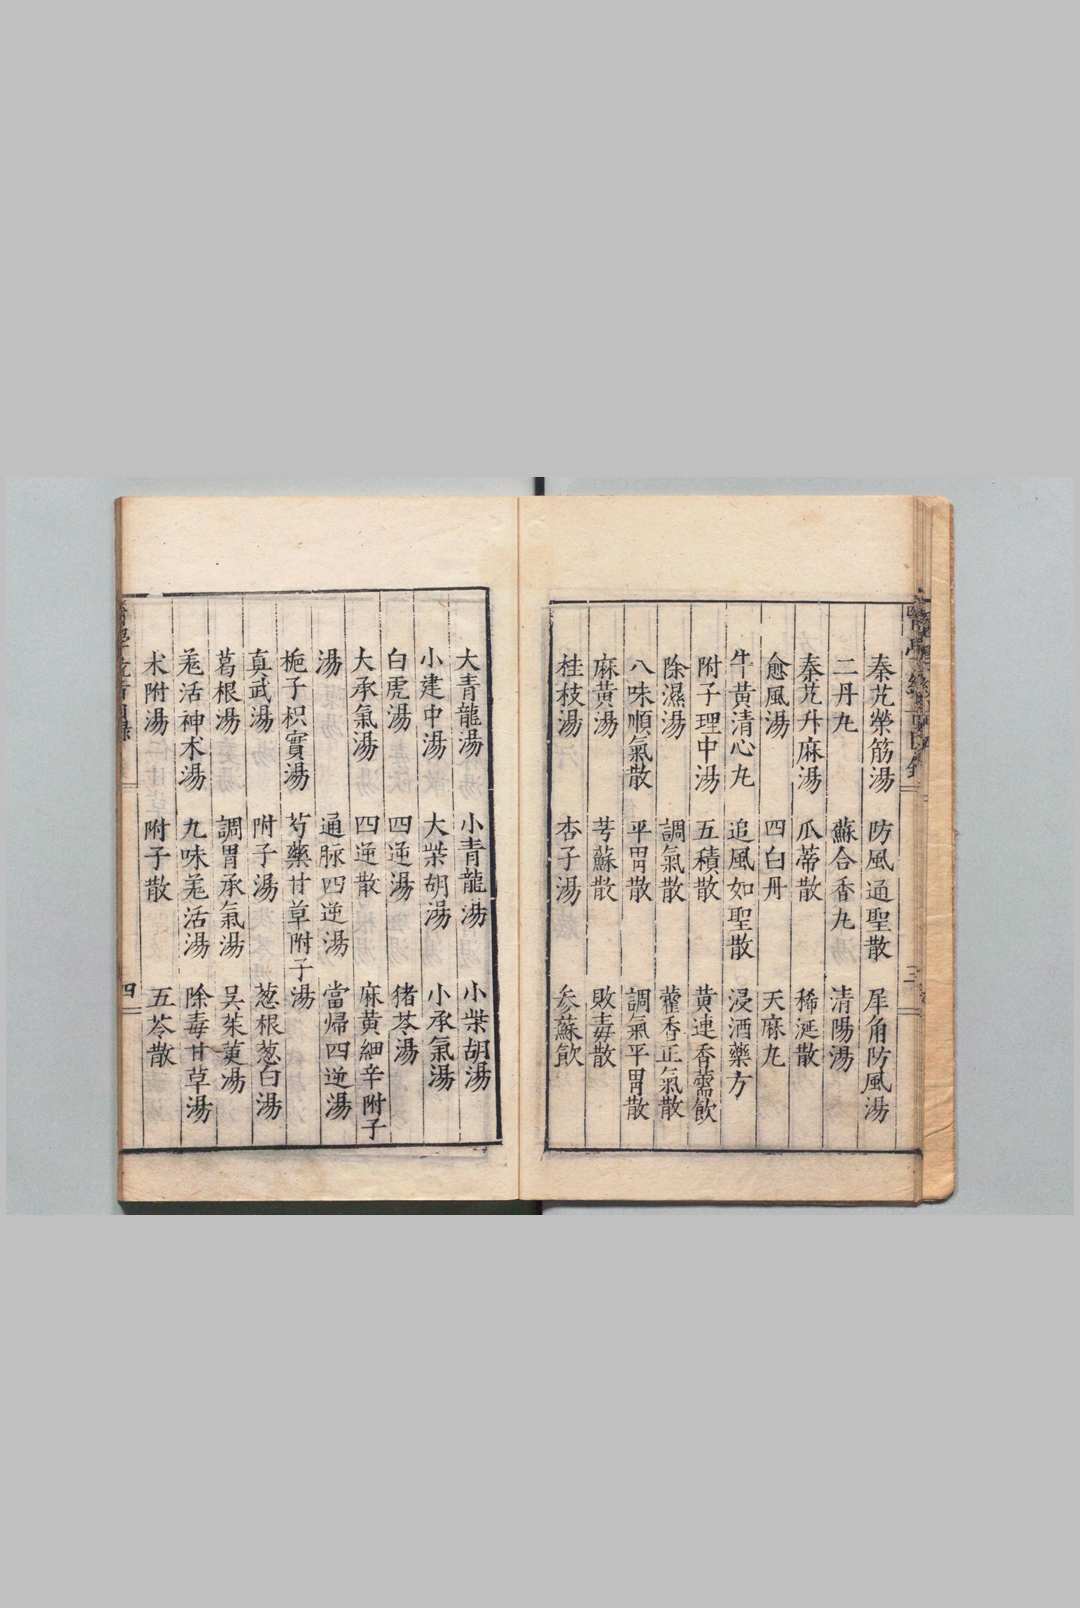 秦艽榮筋湯 防風通聖散 犀角防風湯
二丹丸 蘇合香丸 清陽湯
秦艽升麻湯 瓜蒂散 稀涎散
愈風湯 四白丹 天麻丸
牛黃清心丸 追風如聖散 浸酒藥方
附子理中湯 五積散 黃連香薷飲
除濕湯 調氣散 藿香正氣散
八味順氣散 平胃散 調氣平胃散
麻黃湯 芎蘇散 敗毒散
桂枝湯 杏子湯 參蘇飲
大青龍湯 小青龍湯 小柴胡湯
小建中湯 大柴胡湯 小承氣湯
白虎湯 四逆湯 猪苓湯
大承氣湯 四逆散 麻黃細辛附子
湯 通脉四逆湯 當歸四逆湯
梔子枳實湯 芍藥甘草附子湯
真武湯 附子湯 葱根葱白湯
葛根湯 調胃承氣湯 吴茱萸湯
羗活神术湯 九味羗活湯 除毒甘草湯
术附湯 附子散 五苓散
四